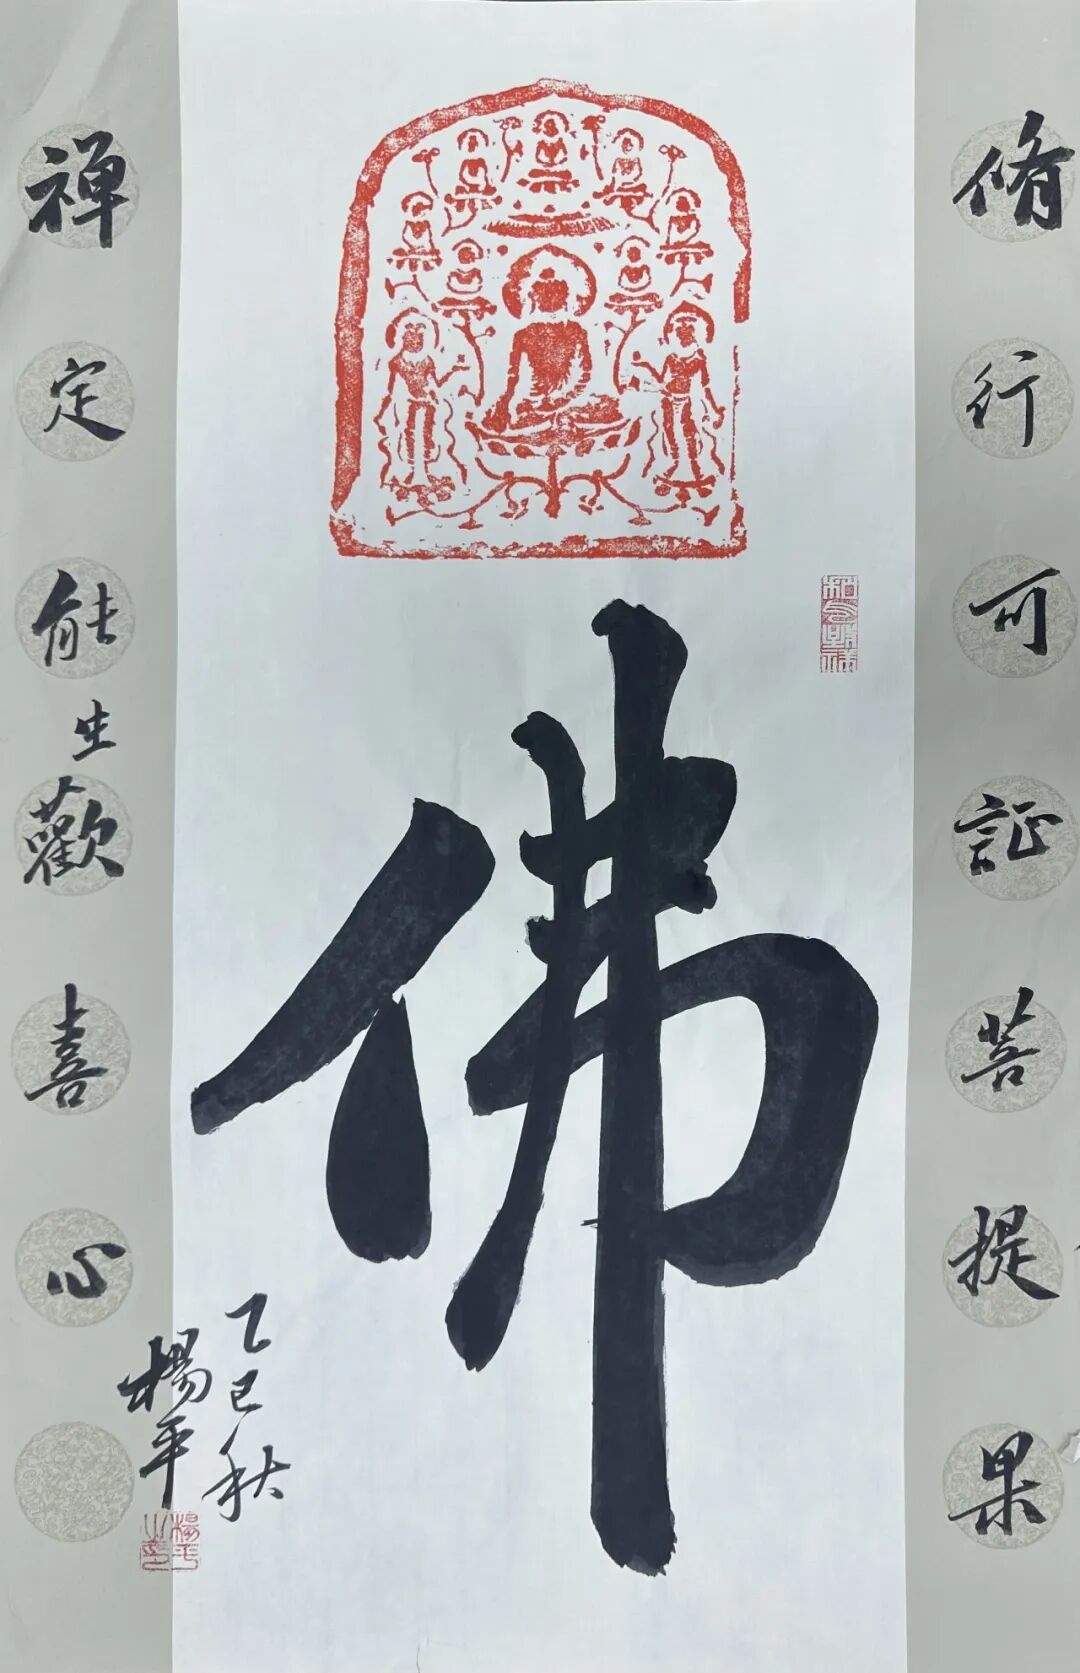 脩行可証菩提果
佛
禅定能生歡喜心
乙巳秋
楊平
楊平之印